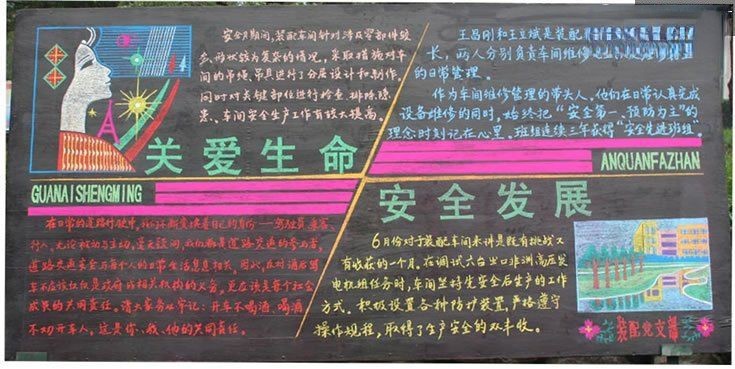 安全月期间,装配车间针对涉及零部件较
多、形状较为复杂的情况,采取措施对车
间的吊绳、吊具进行了分类设计和制作,
同时对关键部位进行检查、排除隐
患、车间安全生产工作有较大提高。
关爱生命
GUANAISHENGMING
王昌刚和王立斌是装配
长,两人分别负责车间维修
的日常管理。
作为车间维修管理的带头人,他们在日常认真完成
设备维修的同时,始终把“安全第一、预防为主”的
理念时刻记在心里。班组连续三年获得“安全先进班组”
ANQUANFAZHAN
安全发展
在日常的道路行驶中,我们不断变换着自己的身份——驾驶员、乘客、
行人,无论被动与主动,毫无疑问,我们都是道路交通的参与者,
道路交通安全与每个人的日常生活息息相关,因此,反对酒后驾
车不应该仅仅是政府或相关机构的义务,更应该是每个社会
成员的共同责任。请大家务必牢记:开车不喝酒、喝酒
不开车。这是你、我、他的共同责任。
6月份对于装配车间来讲是既有挑战又
有收获的一个月。在调试六台出口非洲高压发
电机组任务时,车间坚持先安全后生产的工作
方式。积极设置各种防护装置,严格遵守
操作规程,取得了生产安全的双丰收。
装配党支部